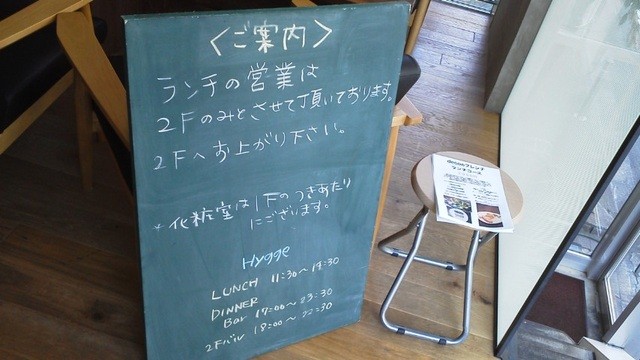 〈ご案内〉
ランチの営業は
2Fのみとさせて頂いております。
2Fへお上がり下さい。
*化粧室は1下のつきあたり
にございます。
Hygge
LUNCH 11:30〜14:30
DINNER
Bar 17:00〜23:30
2Fバル 18:00〜22:30
ランチコース